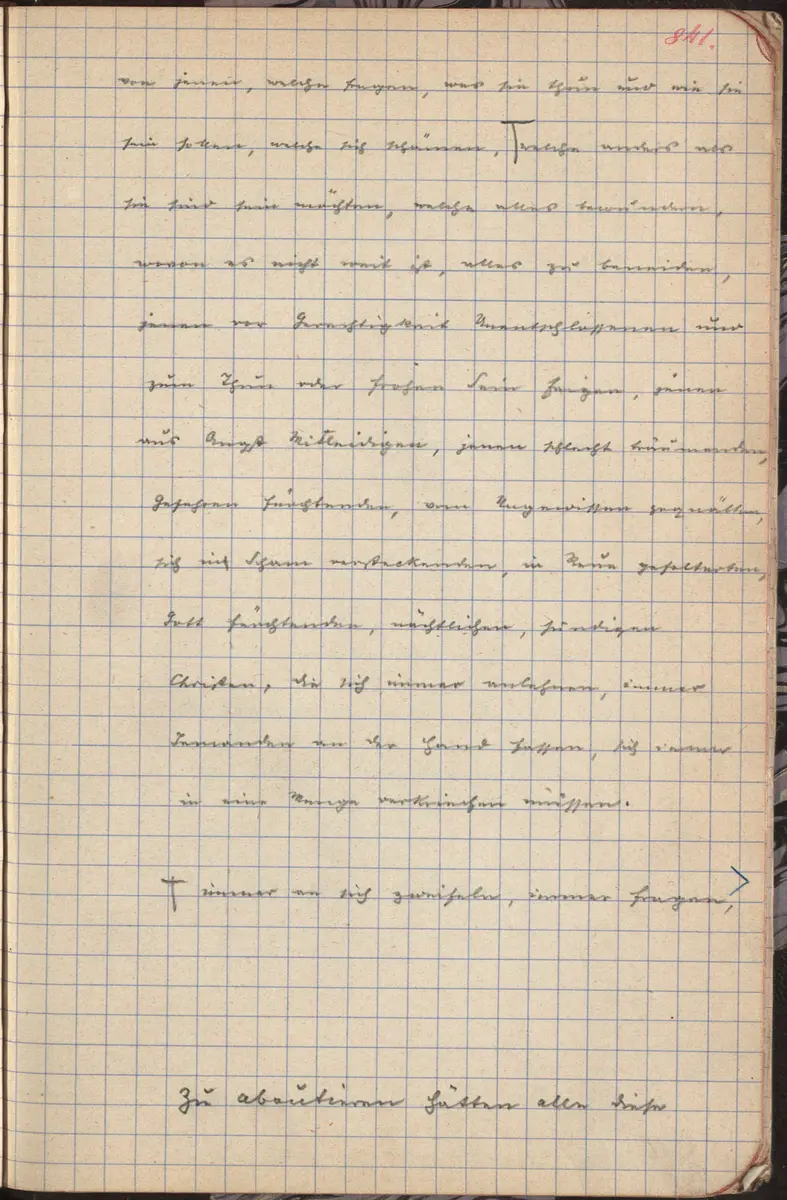 841.
von jenen, welche fragen, was sie thun und wie sie
sein sollen, welche sich schämen, welche anders als
sie sind sein möchten, welche alles bewundern,
wovon es nicht weit ist, alles zu beneiden,
jenen vor Gerechtigkeit Unentschlossenen und
zum Thun oder frohen Sein feigen, jenen
aus Angst Mitleidigen, jenen schlecht träumenden,
Gefahren fürchtenden, vom Ungewissen gequälten,
sich mit Scham versteckenden, in Reue gefolterten,
Gott fürchtenden, nächtlichen, sündigen
Christen, die sich immer anlehnen, immer
Jemanden an der Hand fassen, sich immer
in eine Menge verkriechen müssen.
immer an sich zweifeln, immer fragen,
Zu aboutieren hätten alle diese